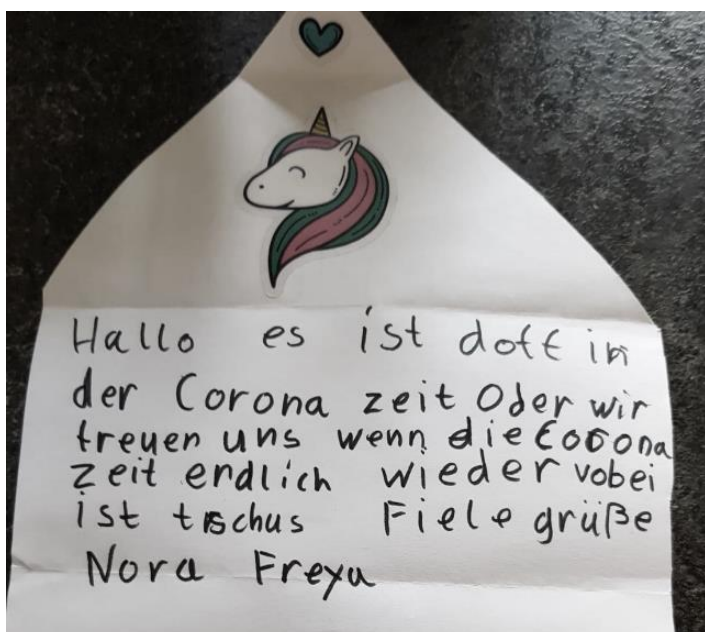 Hallo es ist doff in
der Corona zeit Oder wir
freuen uns wenn die Corona
zeit endlich wieder vobei
ist tschus Fiele grüße
Nora Freya